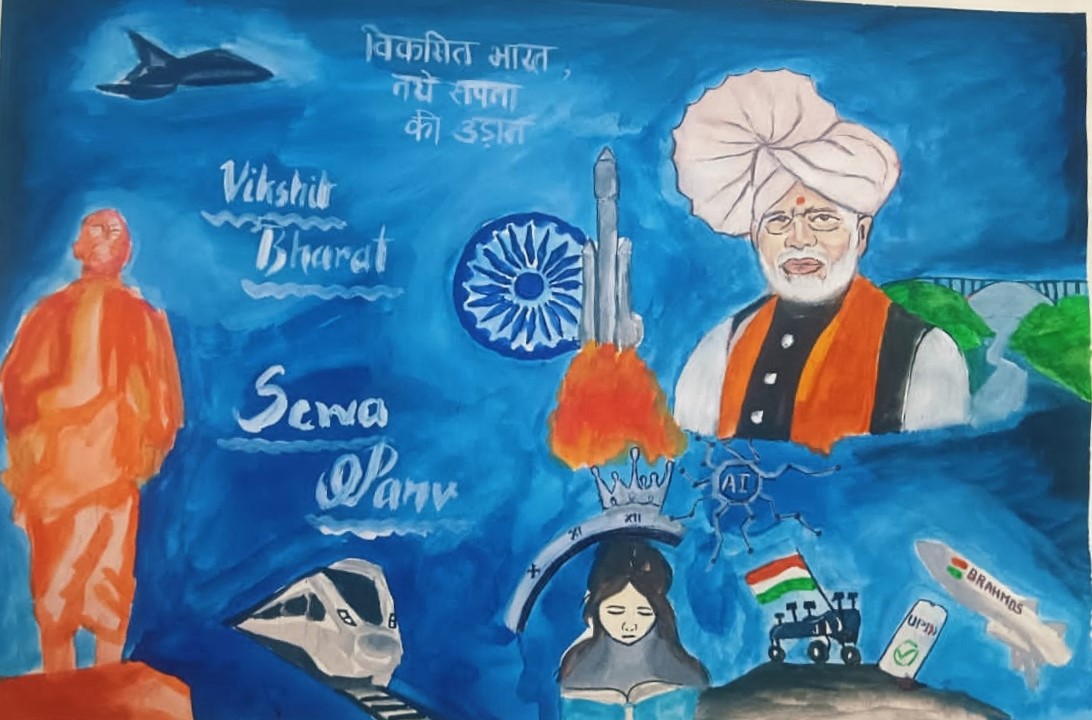 विकसित भारत,
नये सपनों
की उड़ान
Vikshit
Bharat
Sewa
Parv
XI
XII
X
AI
BRAHMOS
UPI